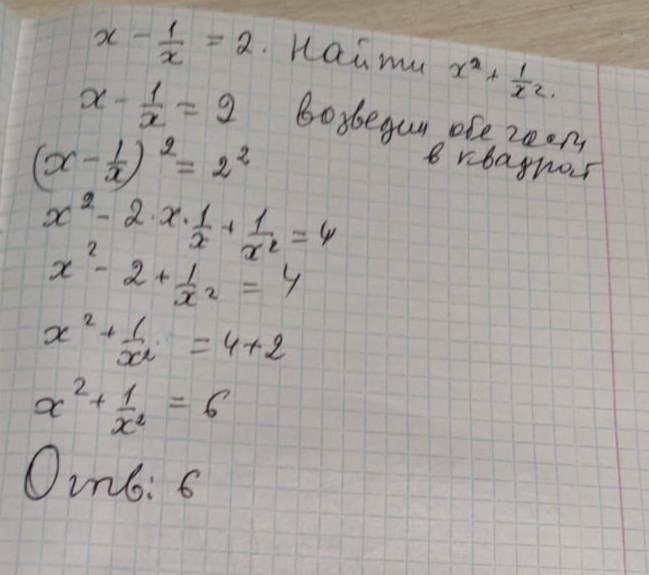 x - 1/x = 2. Найти x² + 1/x².
x - 1/x = 2 возведим обе части
в квадрат
(x - 1/x)² = 2²
x² - 2·x·1/x + 1/x² = 4
x² - 2 + 1/x² = 4
x² + 1/x² = 4+2
x² + 1/x² = 6
Отв: 6